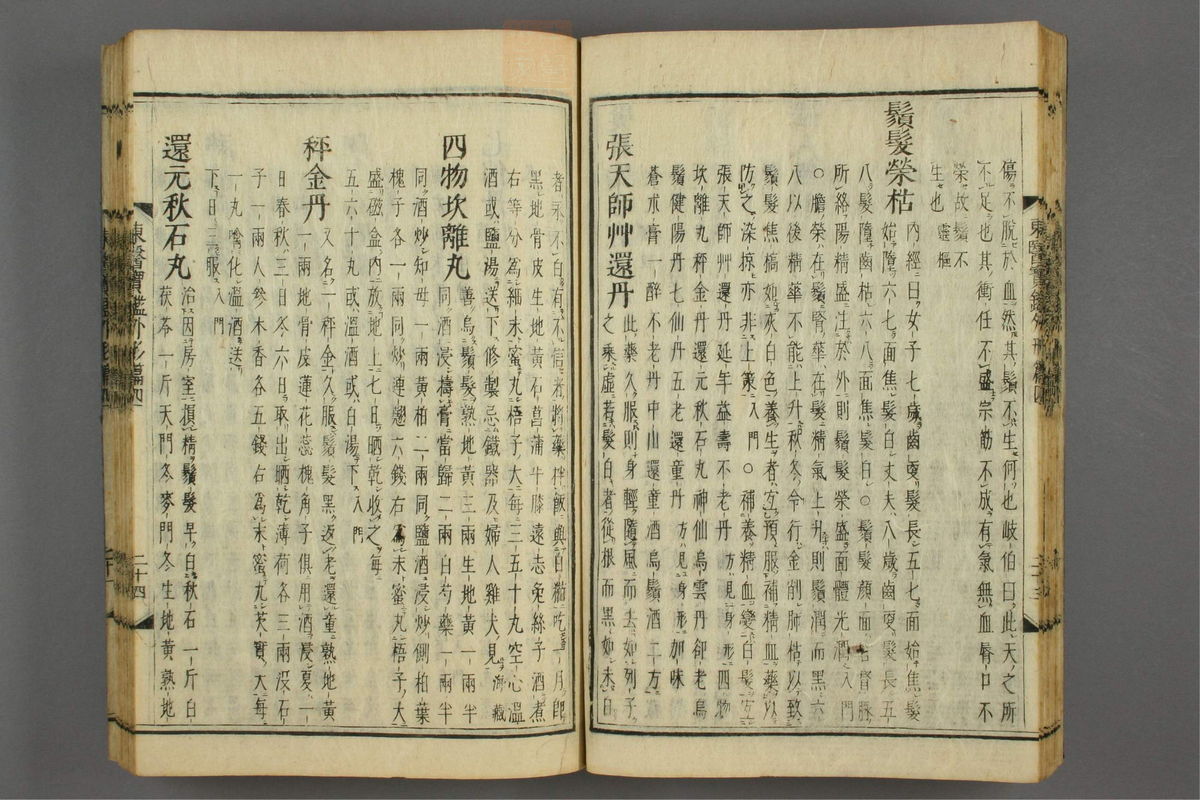 傷不脫於血然其鬚不生何也岐伯曰此天之所
不足也其衝任不盛宗筋不成有氣無血唇口不
榮故鬚不
生也靈樞
鬚髮榮枯內經曰女子七歲齒更髮長五七面始焦髮
始墮六七面焦髮白丈夫八歲齒更髮長五
八髮墮齒枯六八面焦鬢白○鬚髮顏面皆督脉
所絡陽精盛注於外則鬚髮榮盛面體光潤入門
○膽榮在鬚腎華在髮精氣上升則鬚潤而黑六
八以後精華不能上升秋冬令行金削肺枯以致
鬚髮焦槁如灰白色養生者宜預服補精血藥以
防之染掠亦非上策入門○補養精血變白髮宜
張天師艸還丹延年益壽不老丹方見身形四物
坎離丸秤金丹還元秋石丸神仙烏雲丹卻老烏
鬚健陽丹七仙丹五老還童丹方見身形加味
蒼朮膏一醉不老丹中山還童酒烏鬚酒二方
張天師艸還丹此藥久服則身輕隨風而去如列子
之乘虛若髮白者從根而黑如未白
者永不白有不信者將藥拌飯與白猫吃一月卽
黑地骨皮生地黃石菖蒲牛膝遠志兔絲子酒煮
右等分爲細末蜜丸梧子大每三五十丸空心溫
酒或鹽湯送下修製忌鐵器及婦人雞犬見海藏
四物坎離丸善烏鬚髮熟地黃三兩生地黃一兩半
同酒浸擣膏當歸二兩白芍藥一兩半
同酒炒知母一兩黃柏二兩同鹽酒浸炒側柏葉
槐子各一兩同炒連翹六錢右爲末蜜丸梧子大
盛磁盒內放地上七日晒乾收之每
五六十丸或溫酒或白湯下入門
秤金丹又名一秤金久服鬚髮黑返老還童熟地黃
一兩地骨皮蓮花蕊槐角子俱用酒浸夏一
日春秋三日冬六日取出晒乾薄荷各三兩沒石
子一兩人參木香各五錢右爲末蜜丸芡實大每
一丸噙化溫酒送
下日三服入門
還元秋石丸治因房室損精鬚髮早白秋石一斤白
茯苓一斤天門冬麥門冬生地黃熟地
東醫寶鑑外形篇四
二十四